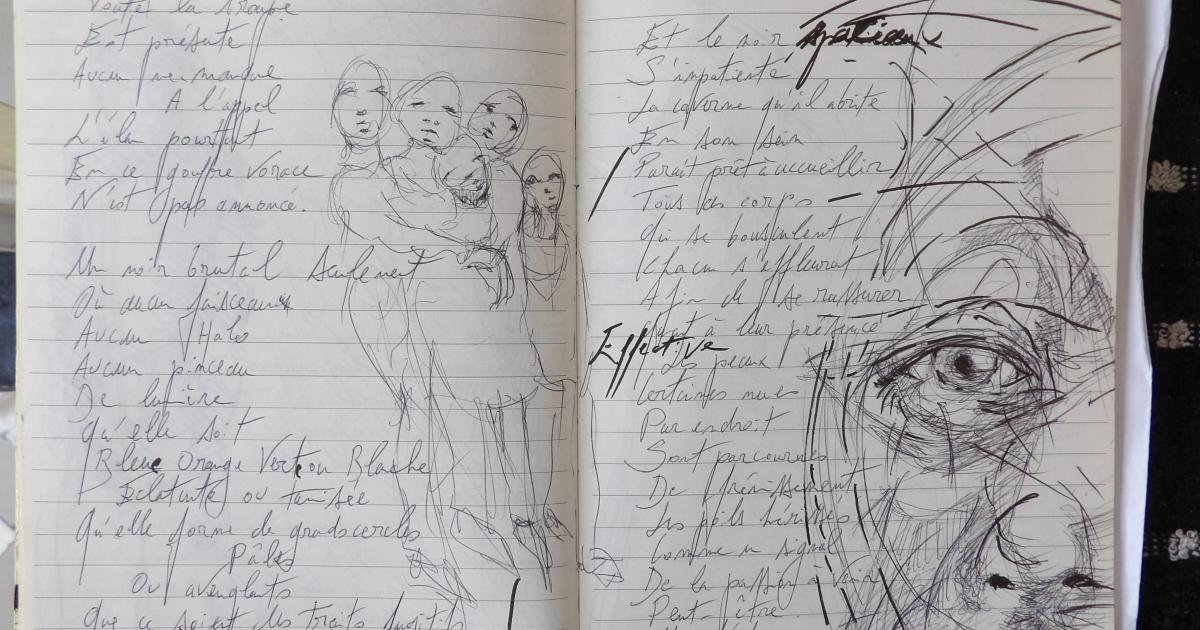 Toute la troupe
Est présente
Aucun ne manque
A l'appel
L'élan pourtant
En ce gouffre vorace
N'est pas annoncé.
Un noir brutal Seulement
Où aucun faisceau
Aucun Halo
Aucun pinceau
De lumière
Qu'elle soit
Bleue Orange Verte ou Blanche
Eclatante ou tamisée
Qu'elle forme de grands cercles
Pâles
Ou aveuglants
Que ce soient des traits
Et le noir spacieux
S'impatiente
La caverne qu'il abrite
En son sein
Parait prêt à accueillir
Tous les corps
Qui se bousculent
Chacun s'effleurant
Afin de se rassurer
Quant à leur présence
Effective
Les peaux
Certaines nues
Par endroit
Sont parcourues
De frémissement
Les poils hérissés
Comme un signal
De la passion à venir
Peut-être